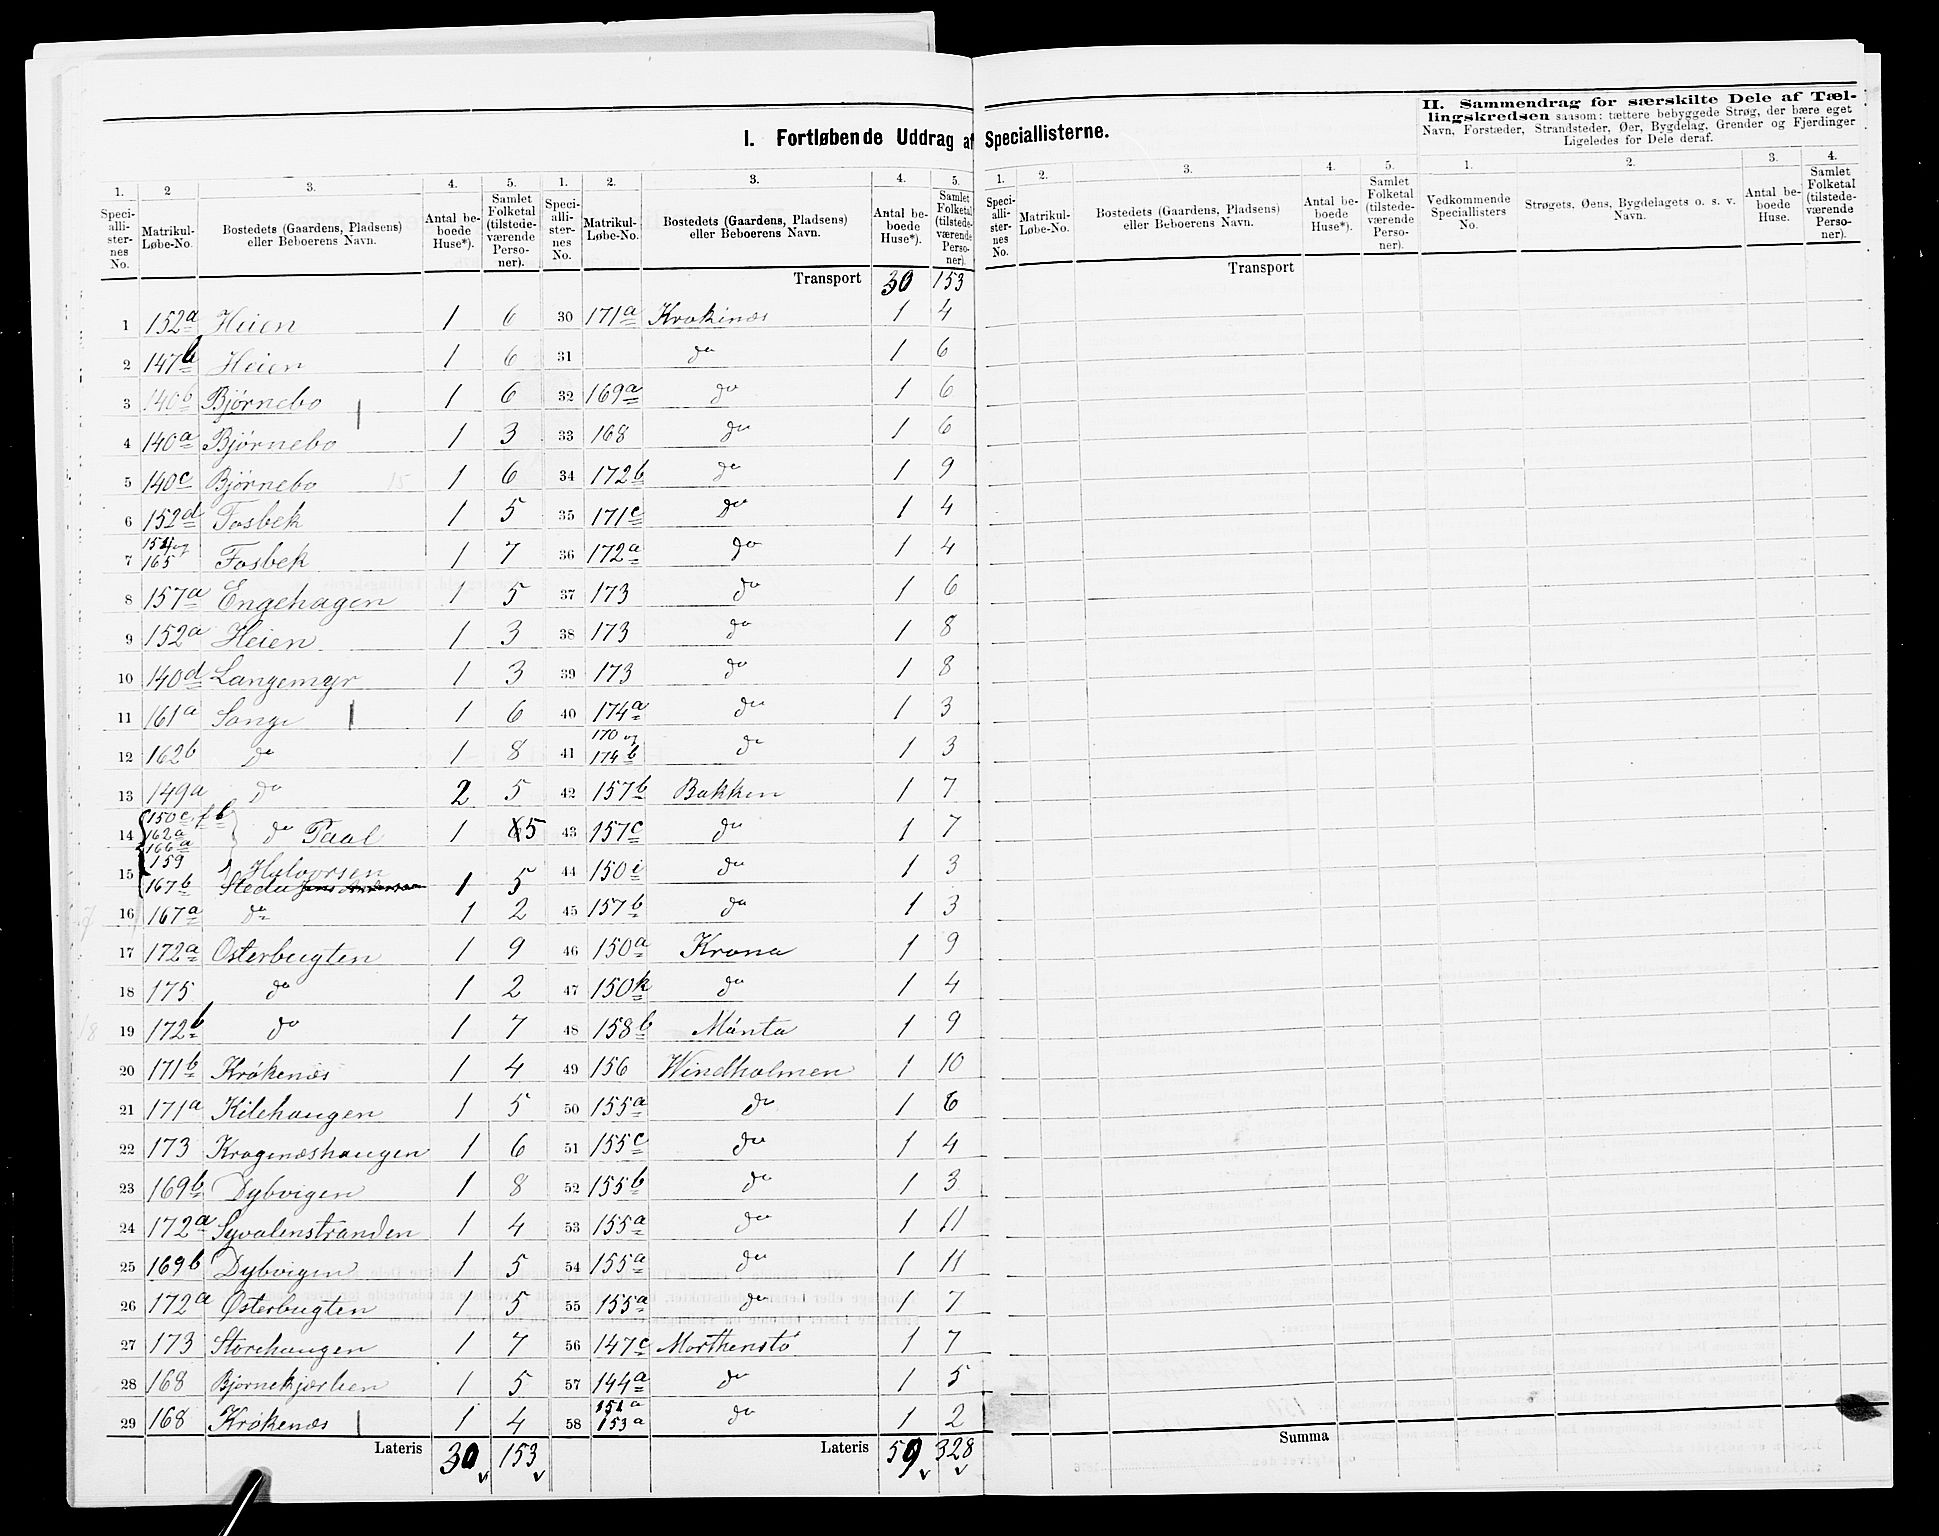 I. Fortløbende Uddrag af Speciallisterne.
II. Sammendrag for særskilte Dele af Tæl-
lingskredsen saasom: tættere bebyggede Strøg, der bære eget
Navn, Forstæder, Strandsteder, Øer, Bygdelag, Grender og Fjerdinger
Ligeledes for Dele deraf.
1. 2 3. 4. 5. 1. 2. 3. 4. 5. 1. 2. 3. 4. 5. 1. 2. 3. 4.
Speci-alli-ster-nes No. Matrikul-Løbe-No. Bostedets (Gaardens, Pladsens) eller Beboerens Navn. Antal be-boede Huse*). Samlet Folketal (tilstede-værende Perso-ner).
Speci-alli-ster-nes No. Matrikul-Løbe-No. Bostedets (Gaardens, Pladsens) eller Beboerens Navn. Antal be-boede Huse*). Samlet Folketal (tilstede-værende Perso-ner).
Speci-alli-ster-nes No. Matrikul-Løbe-No. Bostedets (Gaardens, Pladsens) eller Beboerens Navn. Antal be-boede Huse*). Samlet Folketal (tilstede-værende Perso-ner).
Vedkommende Speciallisters No. Strøgets, Øens, Bygdelagets o. s. v. Navn. Antal be-boede Huse. Samlet Folketal (tilstede-værende Perso-ner).
Transport 30 153
Transport
1 152a Heien 1 6
2 147b Heien 1 6
3 140b Bjørnebo 1 6
4 140a Bjørnebo 1 3
5 140c Bjørnebo 15 1 6
6 152d Fosbek 1 5
7 154 og 165 Fosbek 1 7
8 157a Engehagen 1 5
9 152a Heien 1 3
10 140d Langemyr 1 3
11 161a Sange 1 6
12 162b Do 1 8
13 149a Do 2 5
14 150c, f b 162a 166a do Paal 1 5
15 159 167b Halvorsen 1 5
16 167a do 1 2
17 172a Østerbugten 1 9
18 175 do 1 2
19 172b do 1 7
20 171b Krókenæs 1 4
21 171a Kilehaugen 1 5
22 173 Kragenæshaugen 1 6
23 169b Dybvigen 1 8
24 172a Syvalenstranden 1 4
25 169b Dybvigen 1 5
26 172a Østerbugten 1 5
27 173 Storehaugen 1 7
28 168 1 5
29 168 Krókenæs 1 4
Lateris 30 153
30 171a Krokenæs 1 4
31 do 1 6
32 169a do 1 6
33 168 do 1 6
34 172b do 1 9
35 171c do 1 4
36 172a do 1 4
37 173 do 1 6
38 173 do 1 8
39 173 do 1 8
40 174a do 1 3
41 170 og 174b do 1 3
42 157b Bakken 1 7
43 157c do 1 7
44 150i do 1 3
45 157b do 1 3
46 150a Krona 1 9
47 150k do 1 4
48 158b Mánta 1 9
49 156 Windholmen 1 10
50 155a do 1 6
51 155c do 1 4
52 155b do 1 3
53 155a do 1 11
54 155a do 1 11
55 155a do 1 7
56 147c Morthenstó 1 7
57 144a do 1 5
58 151a 153a do 1 2
Lateris 59 328
Summa